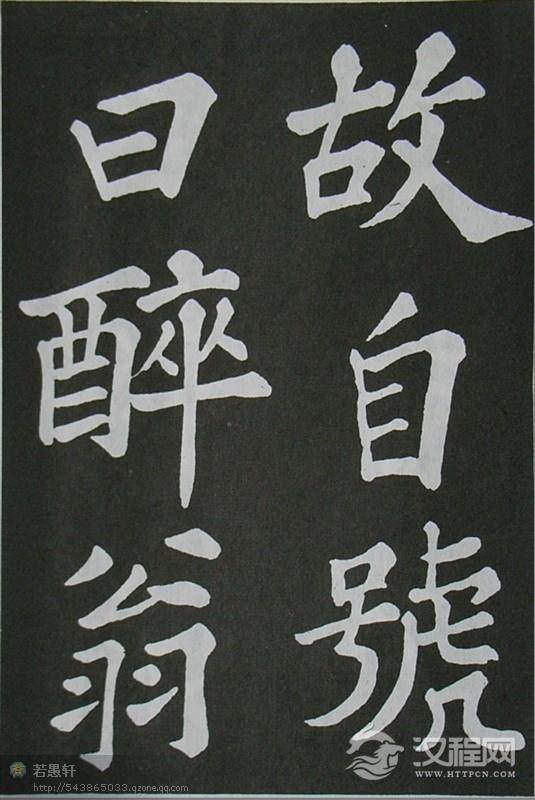 故自號
曰醉翁
若愚轩
http://543865033.qzone.qq.com
汉程网
WWW.HTTPCN.COM